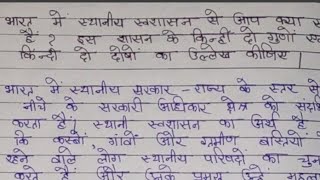 भारत में स्थानीय स्वशासन से आप क्या स
है? इस शासन के किन्हीं दो गुणों एवं
किन्हीं दो दोषों का उल्लेख कीजिए |
भारत में स्थानीय सरकार - राज्य के स्तर से
नीचे के सरकारी अधिकार क्षेत्र को संदर्भि
करता है। स्थानी स्वशासन का अर्थ है
कि कस्बों, गांवों और ग्रामीण बस्तियों
रहने वाले लोग स्थानीय परिषदों का चुन
करते हैं और उनके प्रमुख उन्हें महत्व